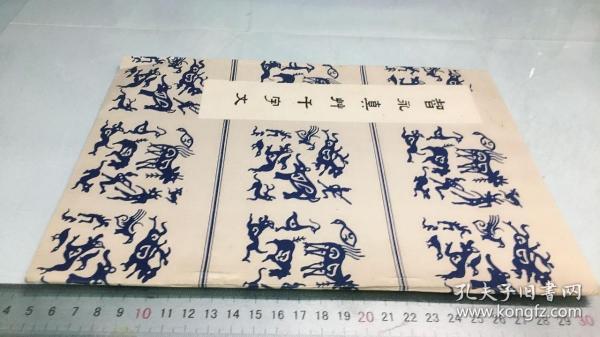 智永真艸千字文
孔夫子旧書网
www.kongfz.com
4 5 6 7 8 9 10 11 12 13 14 15 16 17 18 19 20 21 22 23 24 25 26 27 28 29 30